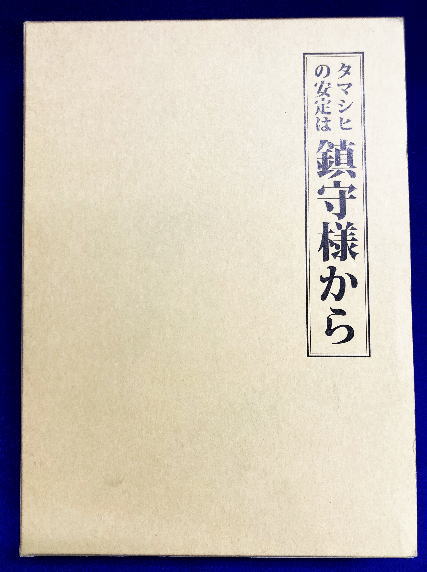 タマシヒ
の安定は
鎮守様から